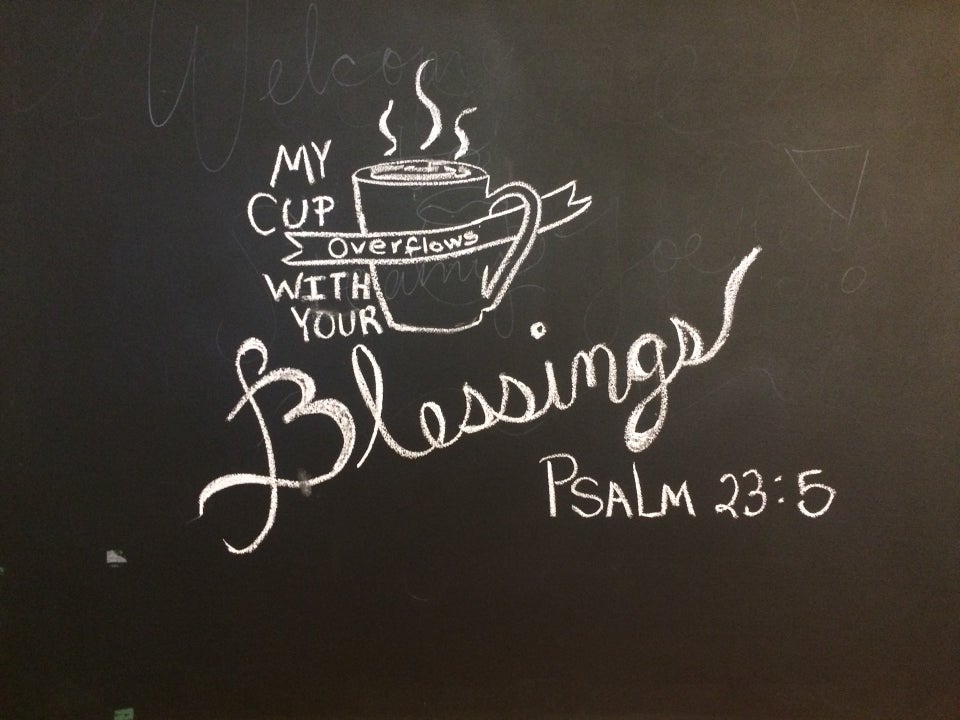 Welcome
MY
CUP
Overflows
WITH
YOUR
Blessings
PSALM 23:5